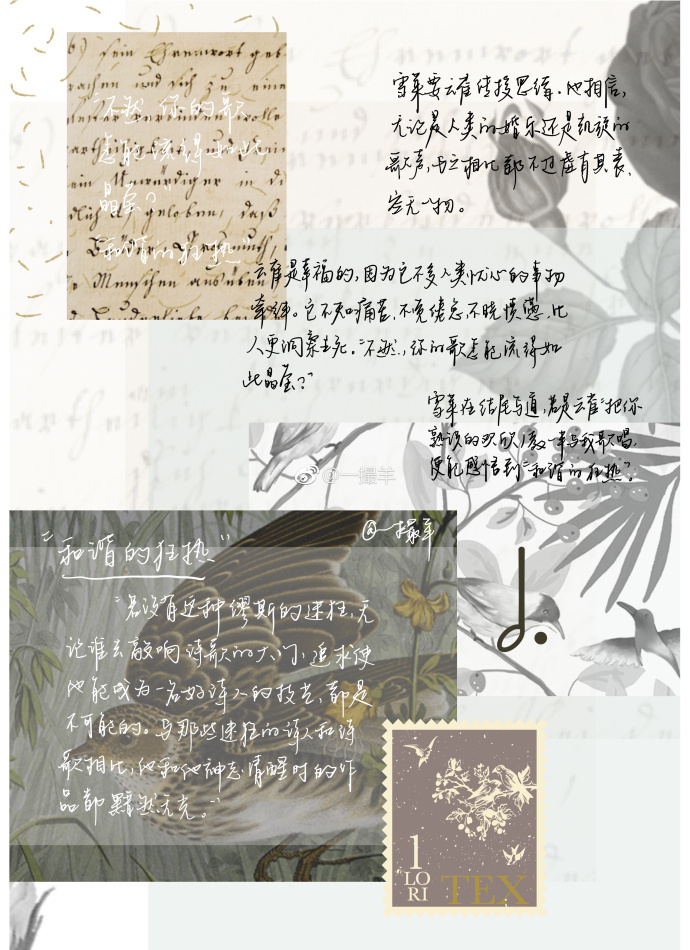 "不然,你的歌
怎能流得如此
晶莹?"
"和谐的狂热"
) sein Ehrenwort geb
rachen und sich zu eine
ein Unwürdiger in di
dlich geloben, daß
e Menschen ausüben
雪莱要云雀传授思绪,他相信,
无论是人类的婚乐还是凯旋的
歌声,与之相比都不过虚有其表,
空无一物。
云雀是幸福的,因为它不受人类忧心的事物
牵绊。它不知痛苦,不觉倦怠,不晓愤懑,比
人更洞察生死。"不然,你的歌怎能流得如
此晶莹?"
雪莱在结尾写道,若是云雀"把你
熟谙的欢欣教一半与我歌唱,
便能感悟到"和谐的狂热"。
@一撮羊
@一撮羊
"和谐的狂热"
"若没有这种缪斯的迷狂,无
论谁去敲响诗歌的大门,追求使
他能成为一名好诗人的技艺,都是
不可能的。与那些迷狂的诗人和诗
歌相比,他和他神志清醒时的作
品都黯然无光。"
1
LO
RI
TEX